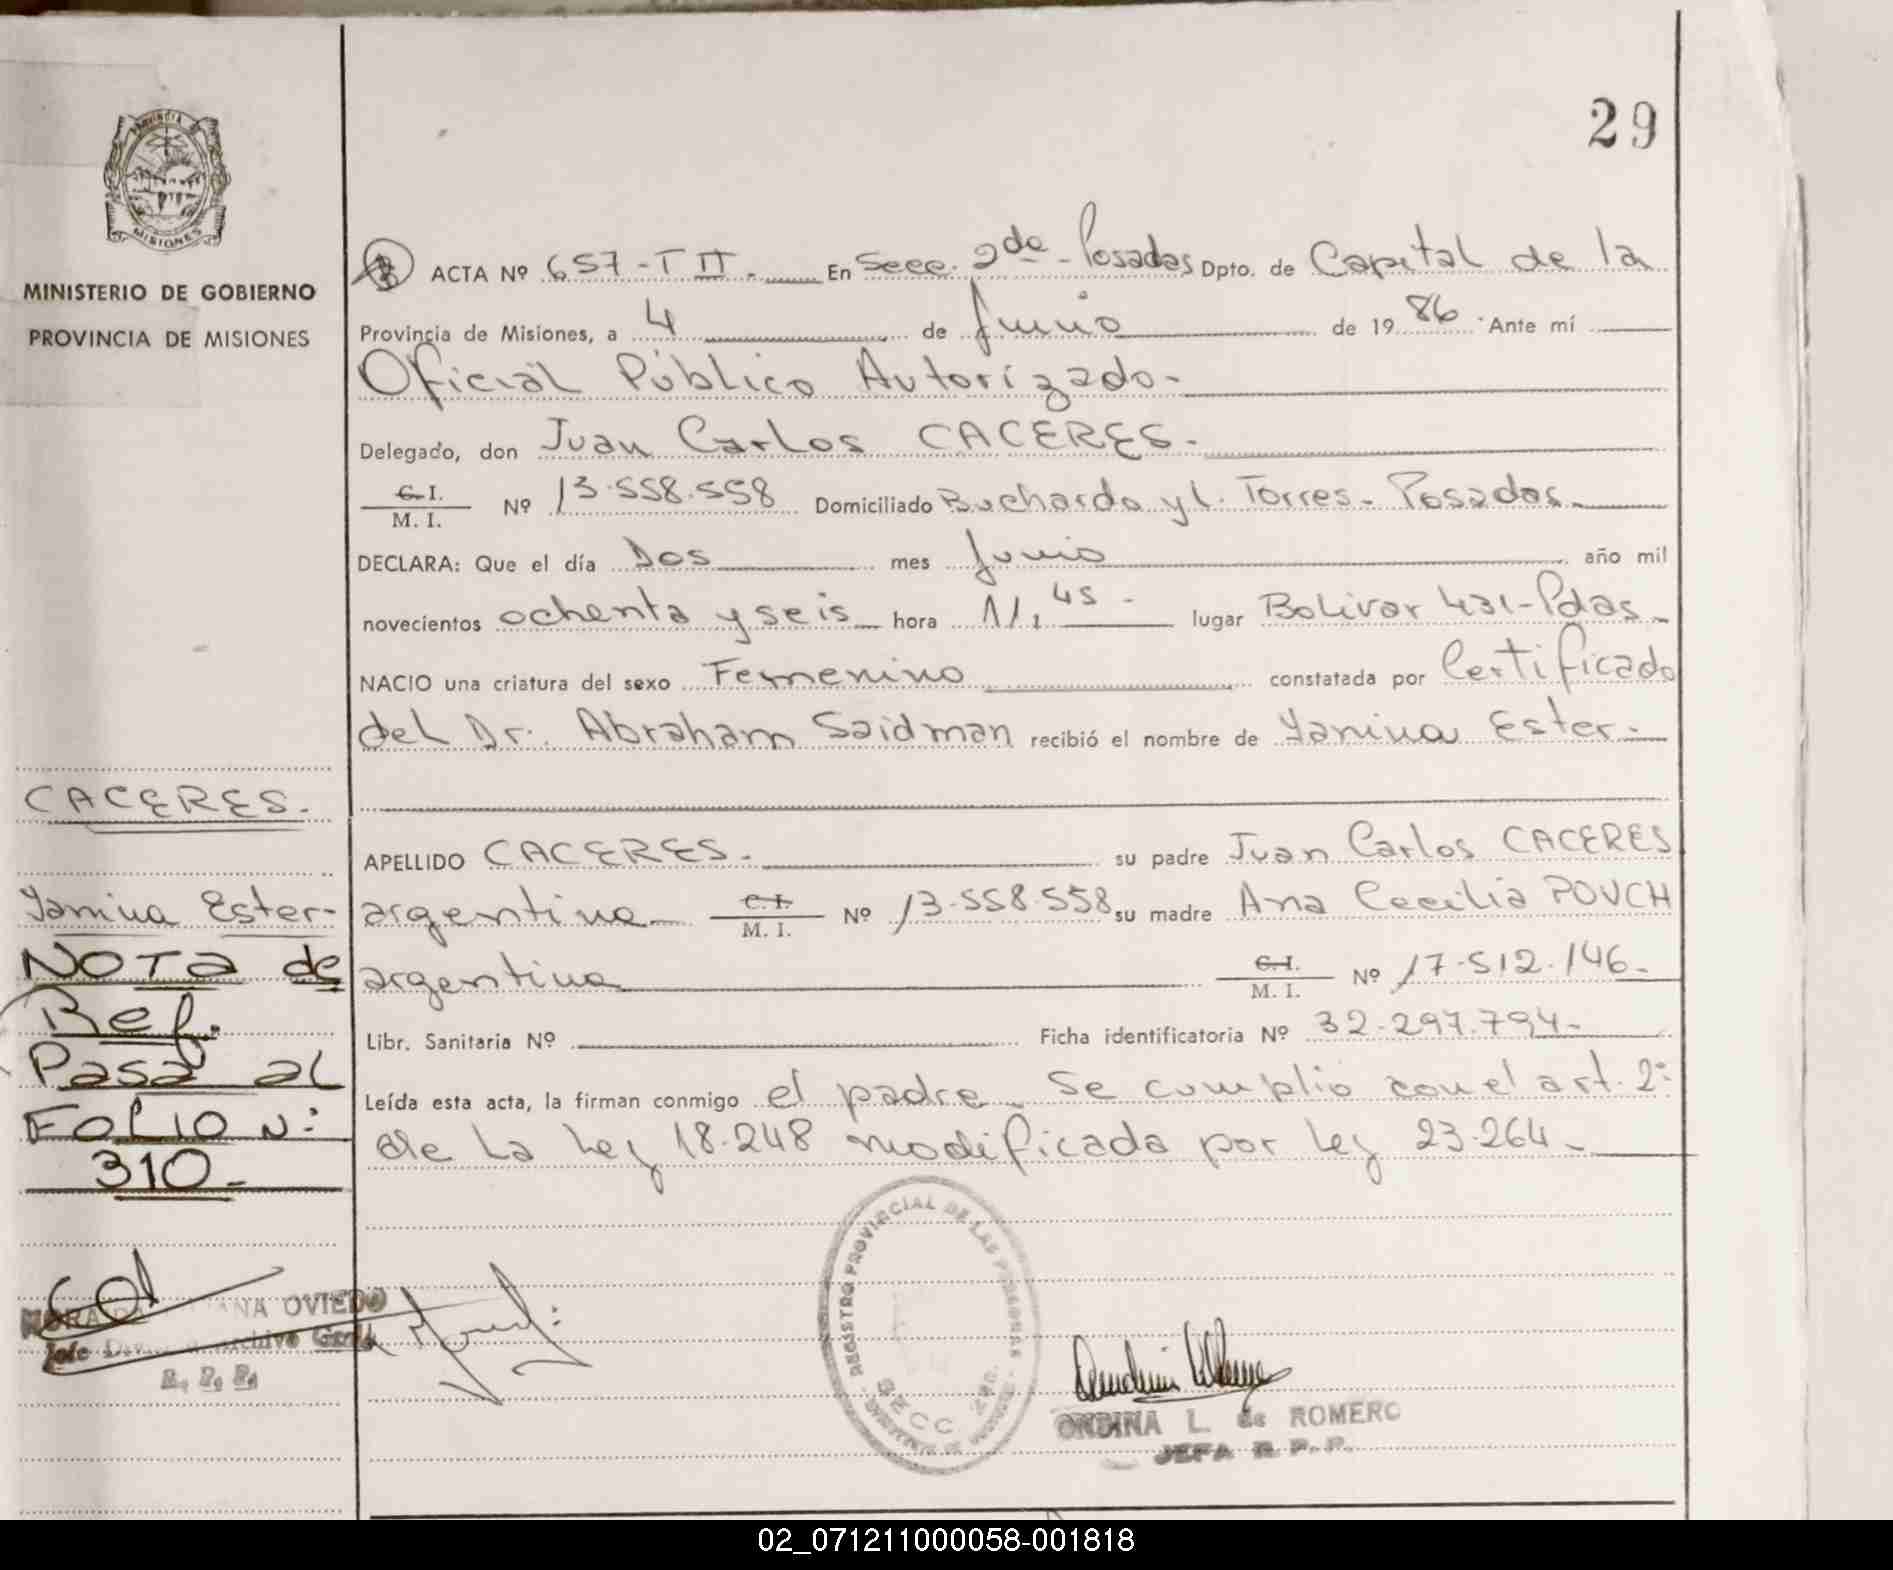 29
PROVINCIA
MISIONES
MINISTERIO DE GOBIERNO
PROVINCIA DE MISIONES
ACTA Nº 657-T II. En Secc. 2da - Posadas Dpto. de Capital de la
Provincia de Misiones, a 4 de Junio de 1986 Ante mí
Oficial Público Autorizado-
Delegado, don Juan Carlos CACERES.
C.I.
M. I. Nº 13.558.558 Domiciliado Buchardo y L. Torres - Posadas
DECLARA: Que el día Dos mes Junio año mil
novecientos ochenta y seis hora 11,45 - lugar Bolivar 431-Pdas
NACIO una criatura del sexo Femenino constatada por Certificado
del Dr. Abraham Saidman recibió el nombre de Yanina Ester-
APELLIDO CACERES. su padre Juan Carlos CACERES
argentino C.I.
M. I. Nº 13.558.558 su madre Ana Cecilia POUCH
argentina C.I.
M. I. Nº 17.512.146-
Libr. Sanitaria Nº Ficha identificatoria Nº 32.297.794-
Leída esta acta, la firman conmigo el padre - Se cumplio con el art. 2º
de La Ley 18.248 modificada por Ley 23.264 -
CACERES.
Yanina Ester-
NOTA de
Ref.
Pasa al
FOLIO Nº
310-
OVIEDO
Jefe Archivo Gral
R. P. P.
REGISTRO PROVINCIAL DE LAS PERSONAS
SECC 2da.
ONDINA L. de ROMERO
JEFA R. P. P.
02_071211000058-001818